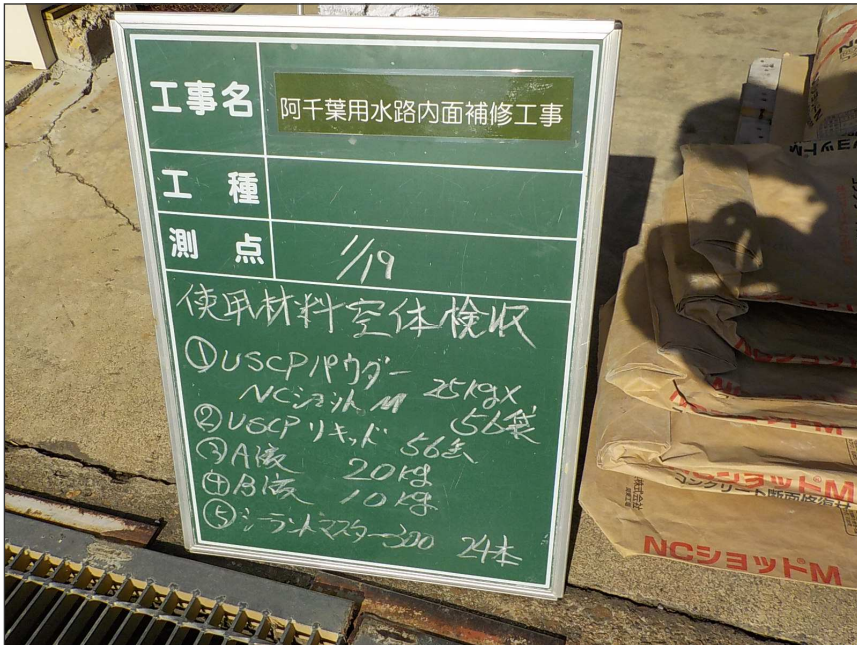 工事名
阿千葉用水路内面補修工事
工種
測点
1/19
使用材料空体検収
①USCPパウダー
NCショットM 25kg×
56袋
②USCPリキッド 56缶
③A液 20kg
④B液 10kg
⑤シーラントマスター300 24本
NCショットM
コンクリート断面修復材
株式会社
NCショットM